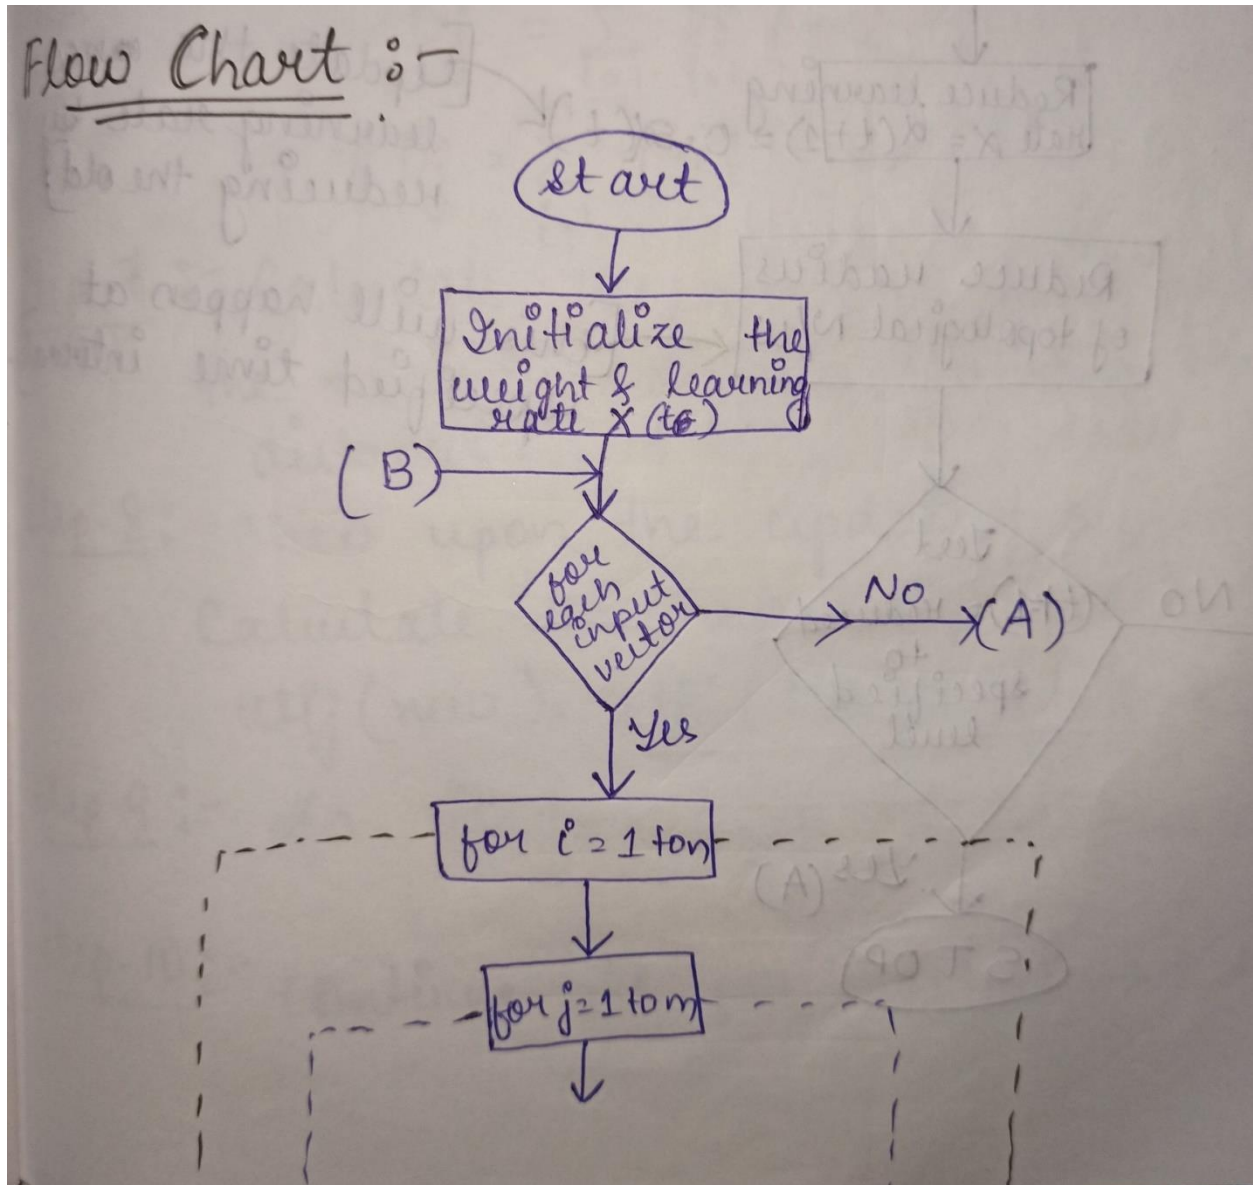 Flow Chart :-
Start
Initialize the
weight & learning
rate
(B)
for
each
input
vector
No
(A)
Yes
for i = 1 to n
for j = 1 to m